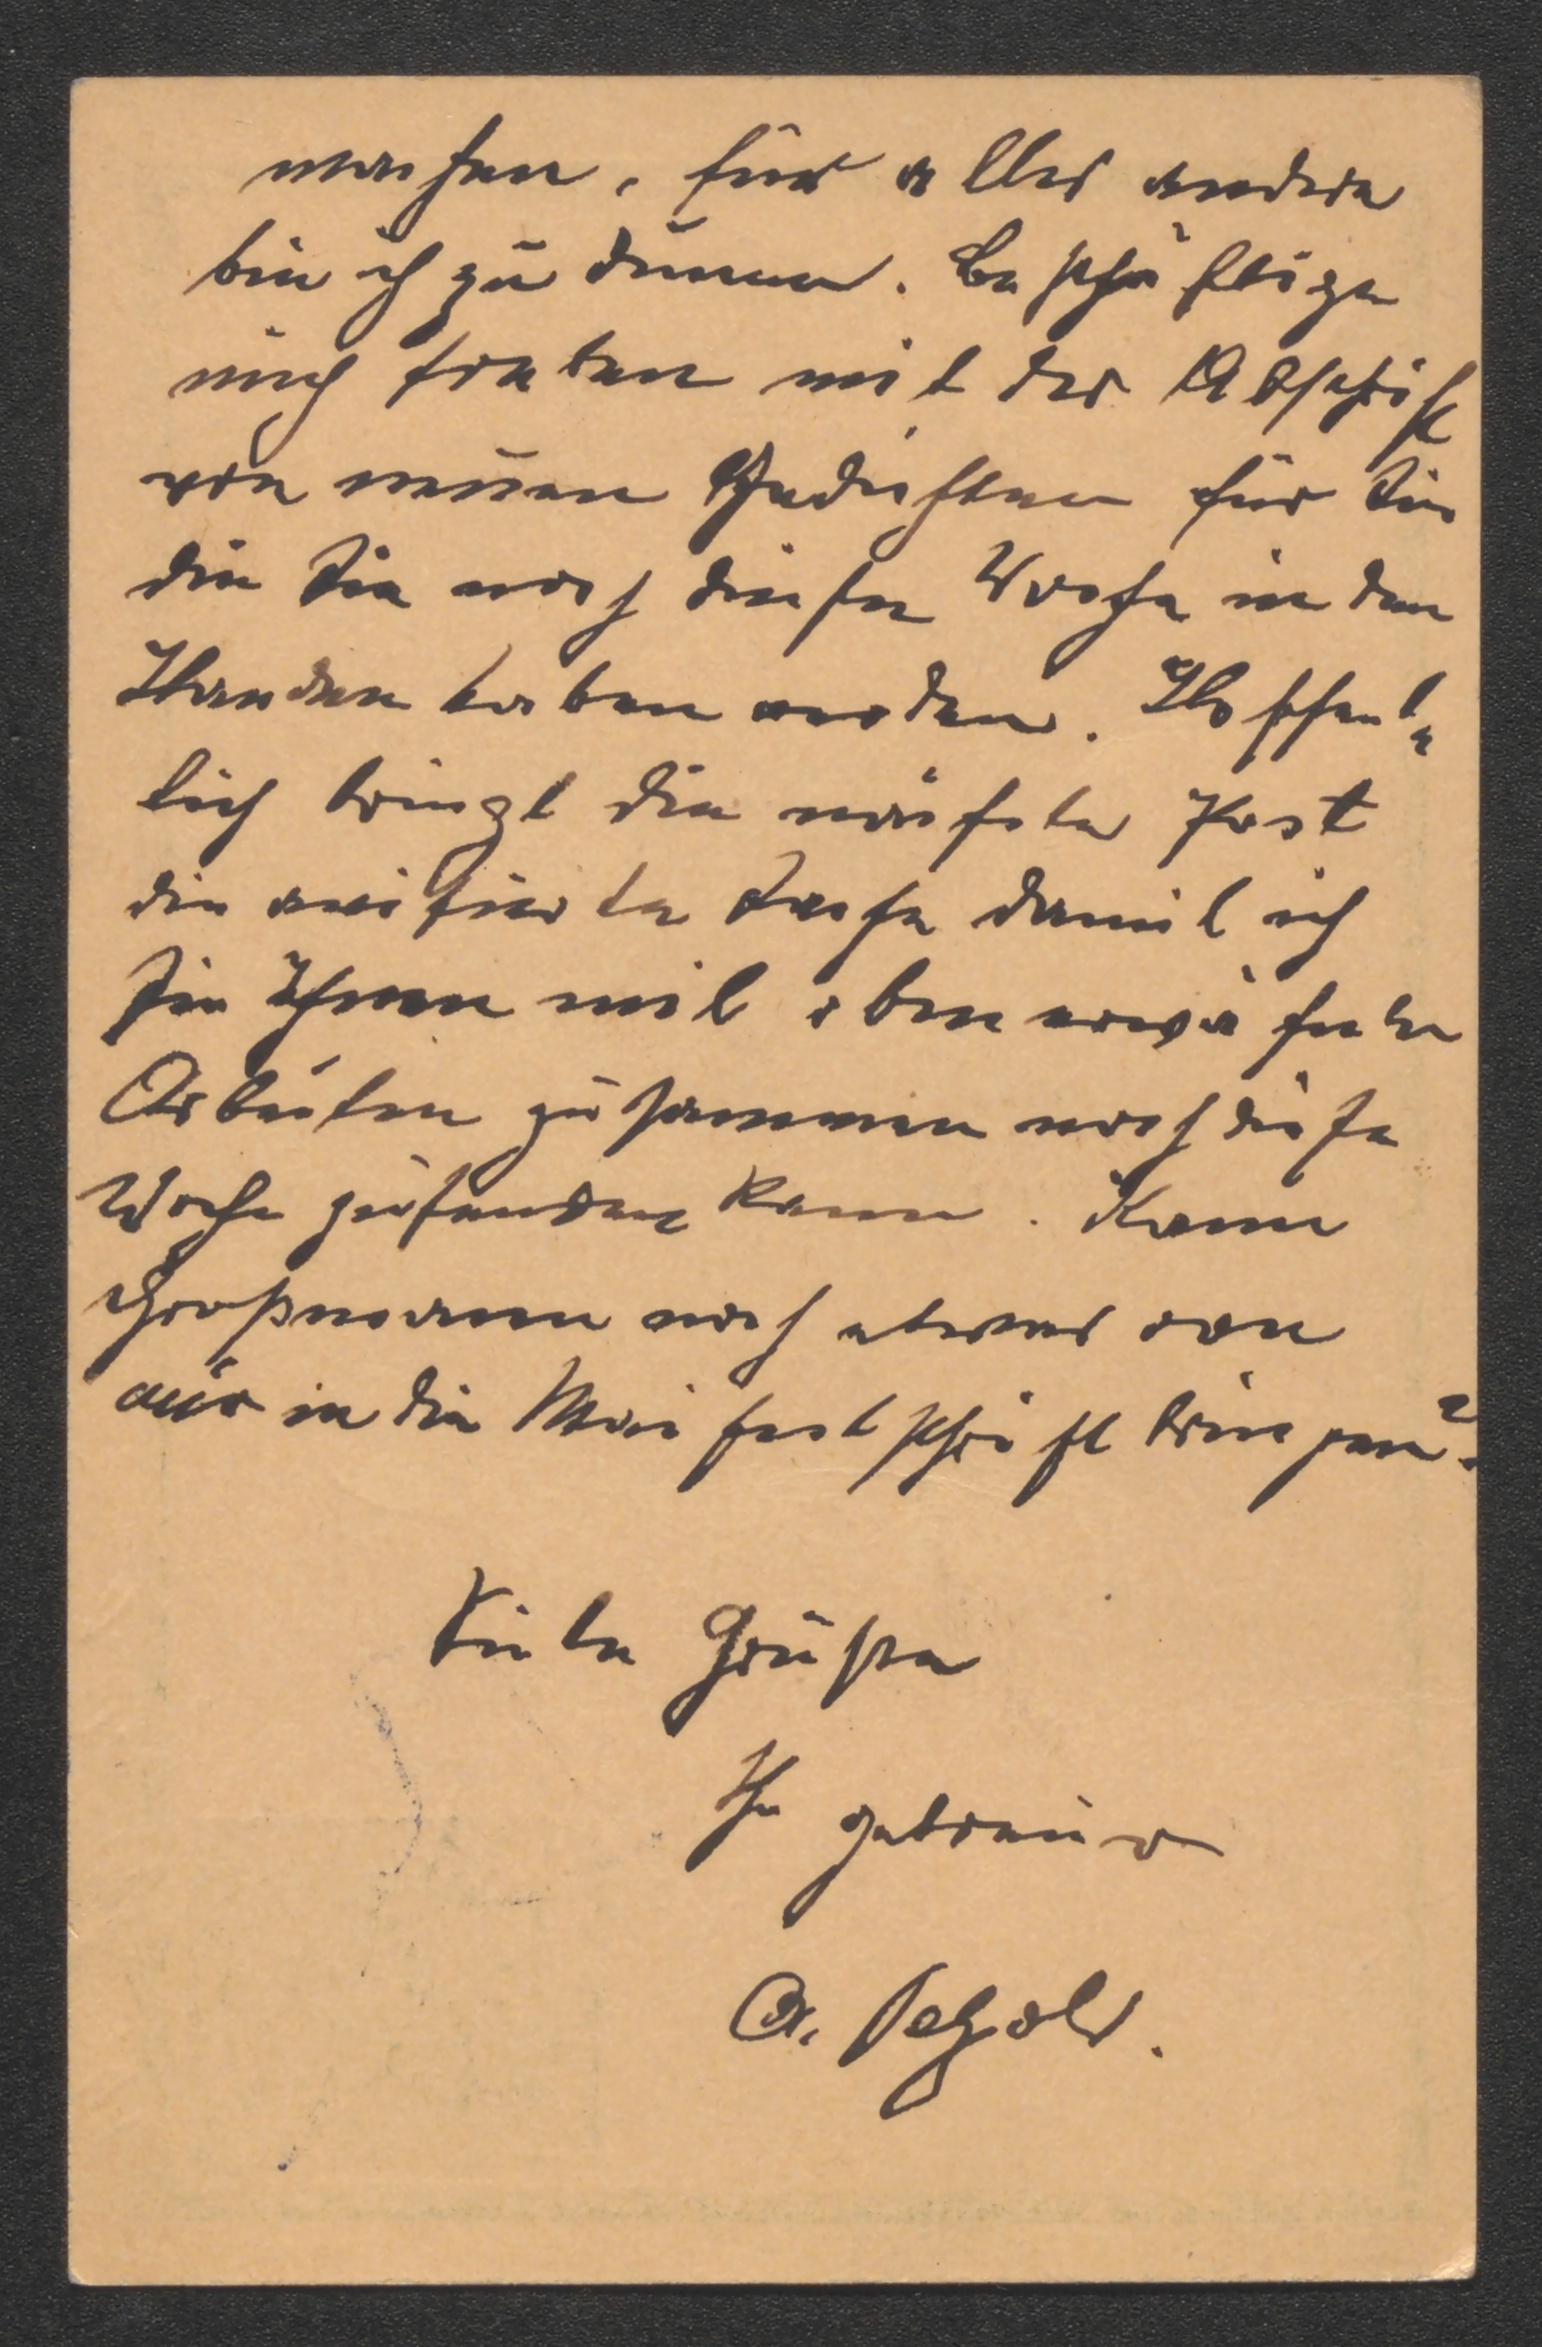 machen, für alles andere
bin ich zu dumm. Beschäftige
mich soeben mit der Abschrift
von neuen Gedichten für Sie
die Sie noch diese Woche in den
Händen haben werden. Hoffent-
lich bringt die nächste Post
die avisierte Sache damit ich
sie Ihnen mit oben erwähnte
Arbeiten zusammen noch diese
Woche zusenden kann. Kann
Großmann noch etwas von
mir in die Maifestschrift bringen?
Viele Grüße
Ihr getreuer
A. Petzold.